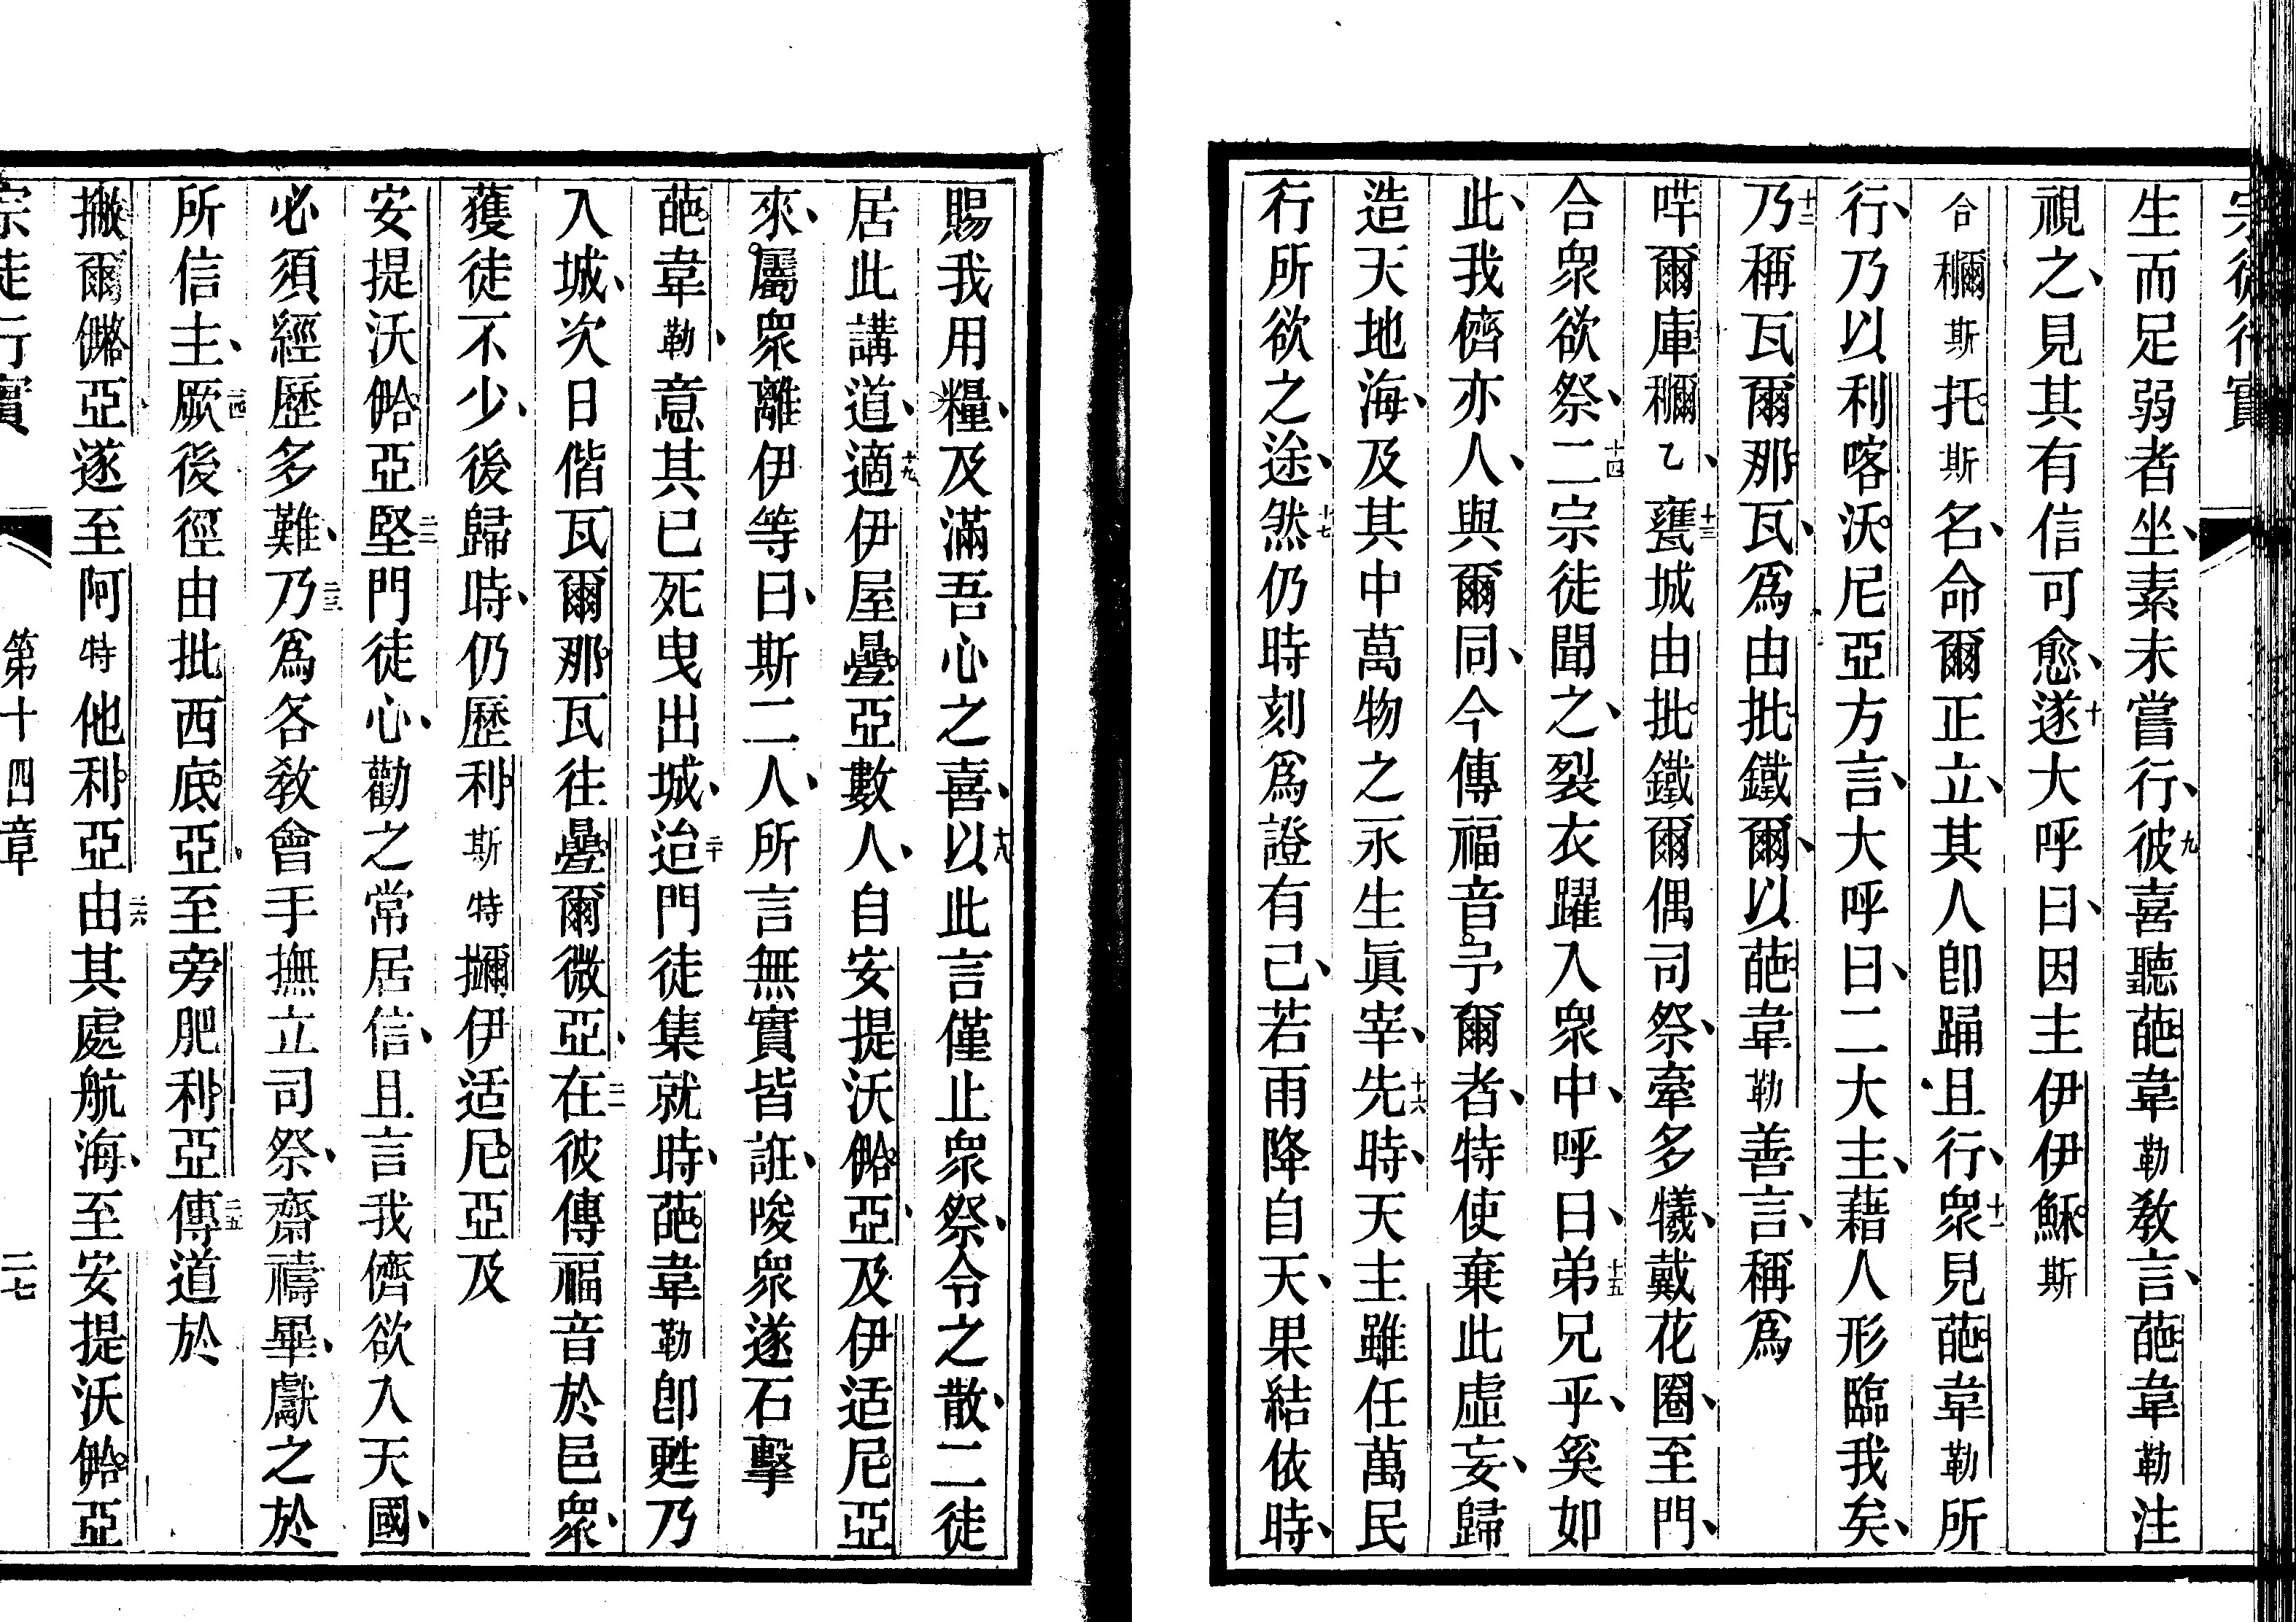 宗徒行實
生而足弱者坐、素未嘗行、九彼喜聽葩韋勒教言、葩韋勒注
視之、見其有信可愈、十遂大呼曰、因主伊伊穌斯
合穪斯托斯名、命爾正立、其人卽踊且行、十一衆見葩韋勒所
行、乃以利喀沃尼亞方言、大呼曰、二大主、藉人形臨我矣、
十二乃稱瓦爾那瓦、爲由批鐵爾、以葩韋勒善言、稱爲
哶爾庫穪乙、十三甕城由批鐵爾偶司祭、牽多犧、戴花圈、至門、
合衆欲祭、十四二宗徒聞之、裂衣躍入衆中、呼曰、十五弟兄乎、奚如
此、我儕亦人、與爾同、今傳福音予爾者、特使棄此虛妄、歸
造天地海、及其中萬物之永生眞宰、十六先時、天主雖任萬民
行所欲之途、十七然仍時刻爲證有己、若雨降自天、果結依時、
賜我用糧、及滿吾心之喜、十八以此言僅止衆祭、令之散、二徒
居此講道、十九適伊屋疊亞數人、自安提沃𫣆亞、及伊适尼亞
來、屬衆離伊等曰、斯二人、所言無實皆誑、唆衆遂石擊
葩韋勒、意其已死曳出城、二十迨門徒集就時、葩韋勒卽甦乃
入城、次日偕瓦爾那瓦往疊爾微亞、二一在彼傳福音於邑衆、
獲徒不少、後歸時、仍歷利斯特擟伊适尼亞及
安提沃𫣆亞二二堅門徒心、勸之常居信、且言我儕欲入天國、
必須經歷多難、二三乃爲各敎會手撫立司祭、齋禱畢、獻之於
所信主、二四厥後徑由批西底亞、至旁肥利亞二五傳道於
撇爾𠐿亞、遂至阿特他利亞二六由其處航海、至安提沃𫣆亞
宗徒行實
第十四章
二七